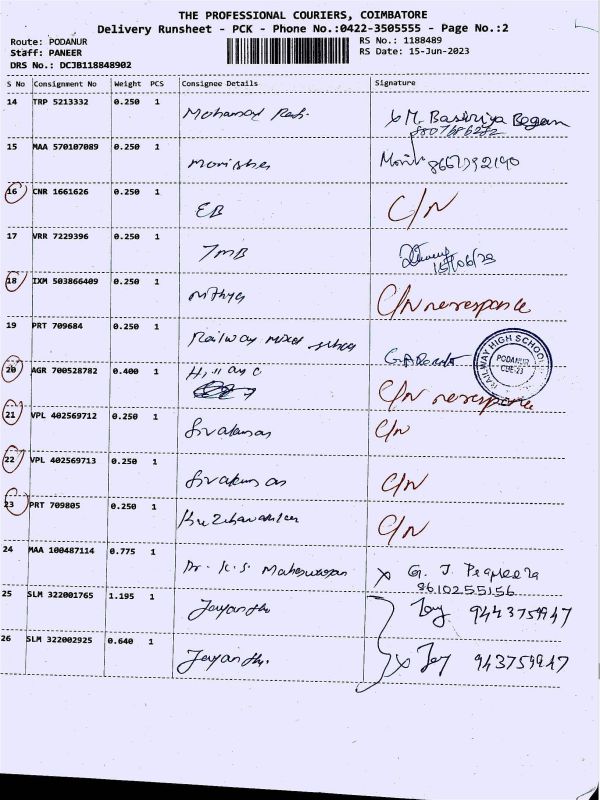 THE PROFESSIONAL COURIERS, COIMBATORE
Delivery Runsheet - PCK - Phone No.:0422-3505555 - Page No.:2
Route: PODANUR RS No.: 1188489
Staff: PANEER RS Date: 15-Jun-2023
DRS No.: DCJB118848902
S No Consignment No Weight PCS Consignee Details Signature
14 TRP 5213332 0.250 1 Mohamed x M. Bashriya Begam
15 MAA 570107089 0.250 1 Monisha
16 CNR 1661626 0.250 1 EB C/N
17 VRR 7229396 0.250 1 TMB
15/06/23
18 IXM 503866409 0.250 1 Nithya C/N no response
19 PRT 709684 0.250 1 Railway mixed school
RAILWAY HIGH SCHOOL
PODANUR
CBE-23
20 AGR 700528782 0.400 1 C/N no response
21 VPL 402569712 0.250 1 Sivakumar C/N
22 VPL 402569713 0.250 1 Sivakumar C/N
23 PRT 709805 0.250 1 C/N
24 MAA 100487114 0.775 1 Dr. K.S. Maheswaran x G. J.
8610255156
25 SLM 322001765 1.195 1 Jayanthi Jay 9443759947
26 SLM 322002925 0.640 1 Jayanthi. x Jay 943759947